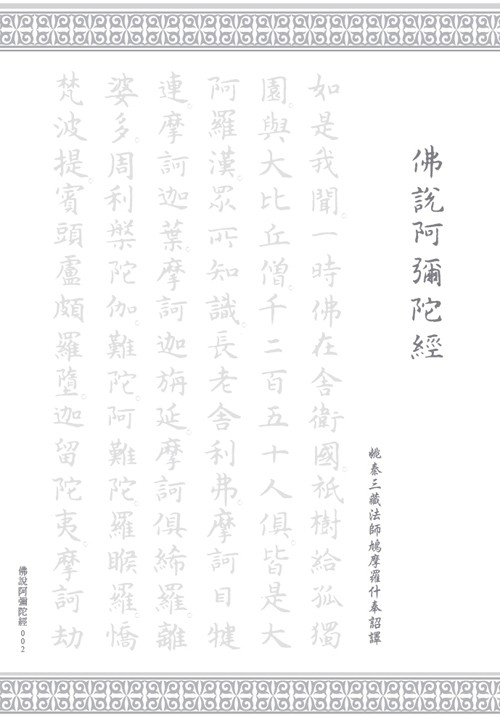 佛說阿彌陀經
姚秦三藏法師鳩摩羅什奉詔譯
如是我聞。一時佛在舍衛國。祇樹給孤獨
園。與大比丘僧。千二百五十人俱。皆是大
阿羅漢。眾所知識。長老舍利弗。摩訶目犍
連。摩訶迦葉。摩訶迦旃延。摩訶俱絺羅。離
婆多。周利槃陀伽。難陀。阿難陀。羅睺羅。憍
梵波提。賓頭盧頗羅墮。迦留陀夷。摩訶劫
佛說阿彌陀經 002